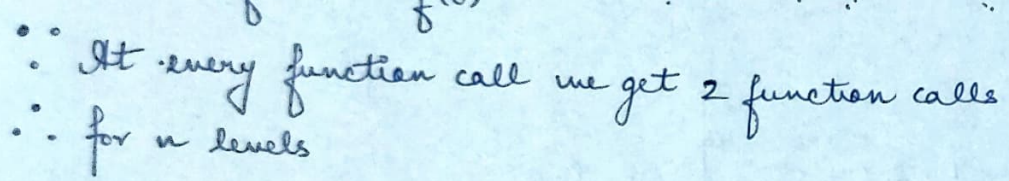 ∵ At every function call we get 2 function calls
∴ for n levels